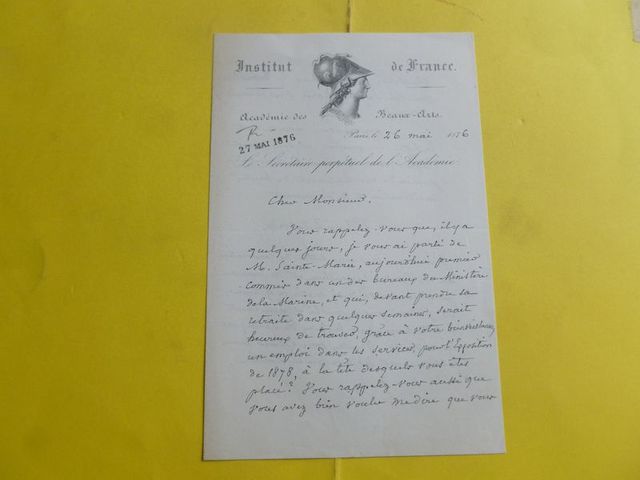 Institut de France.
Académie des Beaux-Arts.
R
27 MAI 1876
Paris le 26 mai 1876
Le Secrétaire perpétuel de l'Académie
Cher Monsieur,
Vous rappelez-vous que, il y a
quelques jours, je vous ai parlé de
M. Sainte-Marie, aujourd'hui premier
commis dans un des bureaux du Ministère
de la Marine, et qui, devant prendre sa
retraite dans quelques semaines, serait
heureux de trouver, grâce à votre bienveillance,
un emploi dans les services, pour l'Exposition
de 1878, à la tête desquels vous êtes
placé? Vous rappelez-vous aussi que
vous avez bien voulu me dire que vous